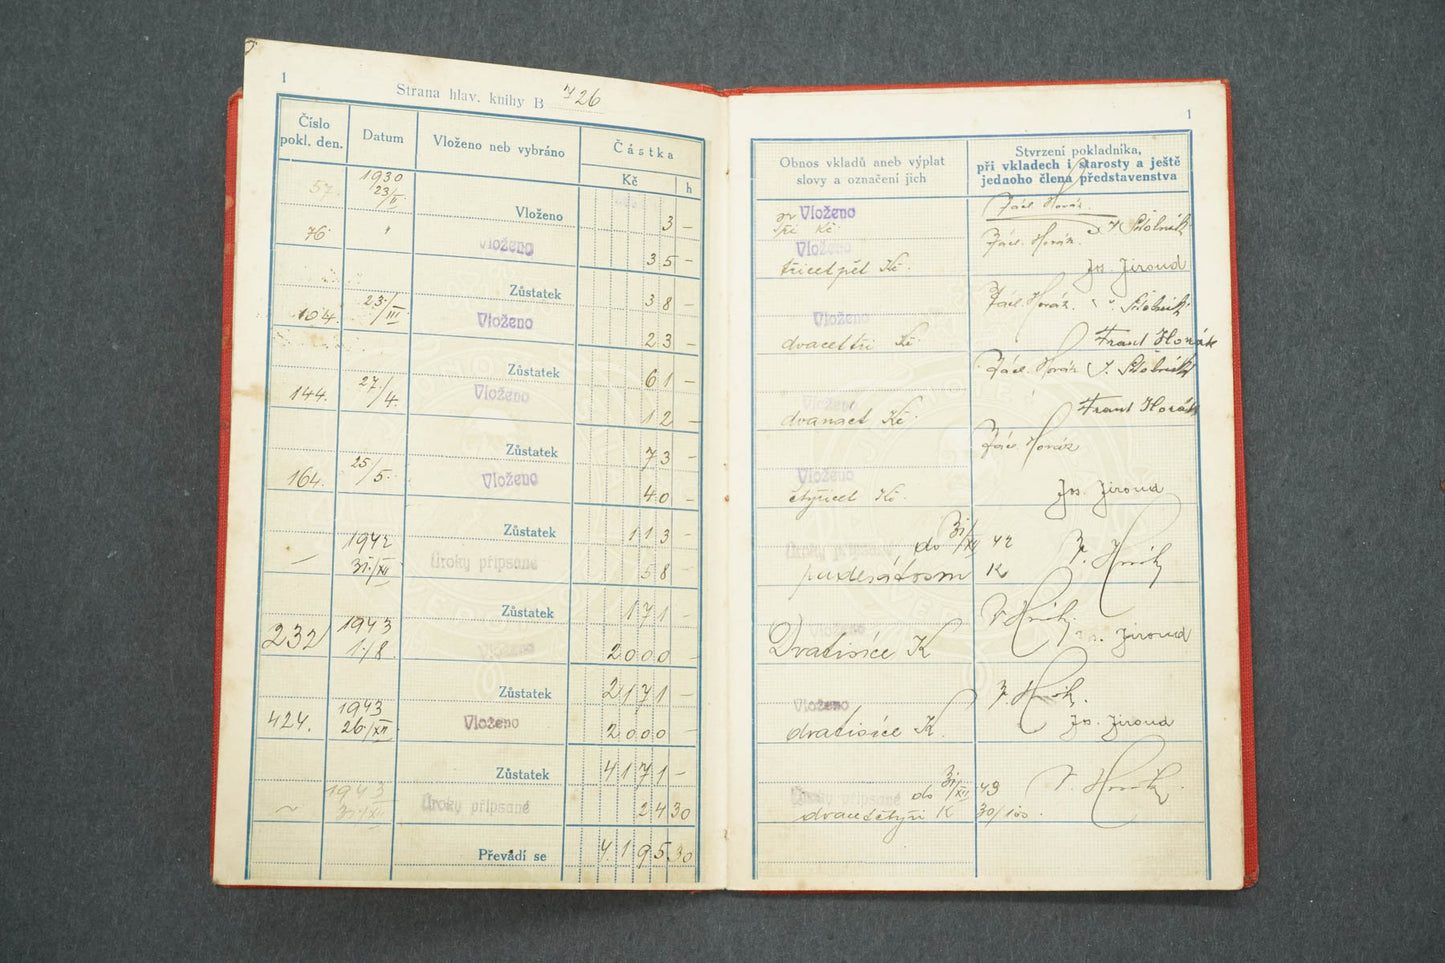 1
Strana hlav. knihy B 726
Číslo pokl. den.
Datum
Vloženo neb vybráno
Částka
Kč h
57. 1930 23/II Vloženo 3 —
76 " Vloženo 35 —
Zůstatek 38 —
104. 23/III Vloženo 23 —
Zůstatek 61 —
144. 27/4. Vloženo 12 —
Zůstatek 73 —
164. 25/5. Vloženo 40 —
Zůstatek 113 —
— 1942 31./XII Úroky připsané 58 —
Zůstatek 171 —
232 1943 1./8. Vloženo 2000 —
Zůstatek 2171 —
424. 1943 26./XII Vloženo 2000 —
Zůstatek 4171 —
~ 1943 31./XII Úroky připsané 24 30
Převádí se 4.195 30
1
Obnos vkladů aneb výplat
slovy a označení jich
Stvrzení pokladníka,
při vkladech i starosty a ještě
jednoho člena představenstva
Vloženo
tři Kč
Vloženo
třicetpět Kč. Jos. Jiroud
Vloženo
dvacettři Kč Frant Horák
Vloženo
dvanact Kč. Frant Horák
Vloženo
čtyřicet Kč. Jos. Jiroud
Úroky připsané do 31/XII 42
padesátosm K
Vloženo
Dvatisíce K Jos. Jiroud
Vloženo
dvatisíce K. Jos. Jiroud
Úroky připsané do 31/XII 43
dvacetčtyři K 30/100.